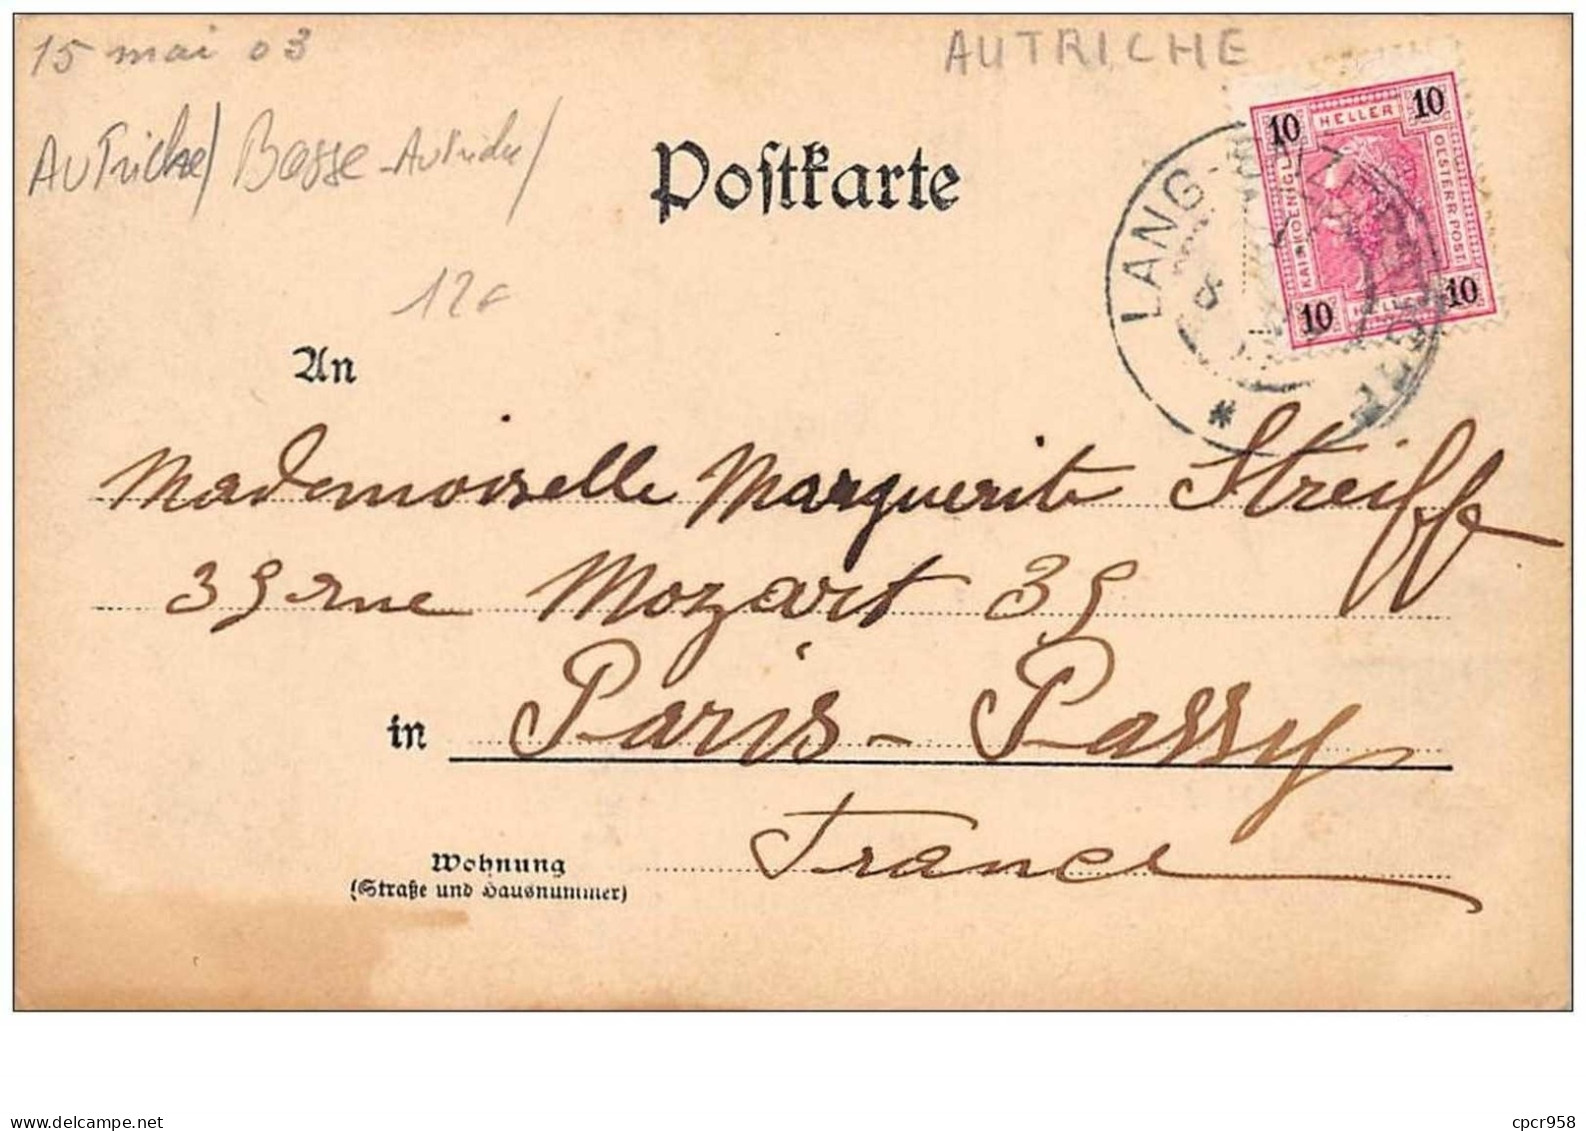 15 mai 03
AUTRICHE
Autriche / Basse-Autriche /
Postkarte
10 HELLER 10
KAIS. KOENIGL.
OESTERR. POST.
10 HELLER 10
LANG-ENZERSDORF
12€
An
Mademoiselle Marguerite Streiff
39 rue Mozart 39
in Paris-Passy
France
Wohnung
(Straße und Hausnummer)
cpcr958